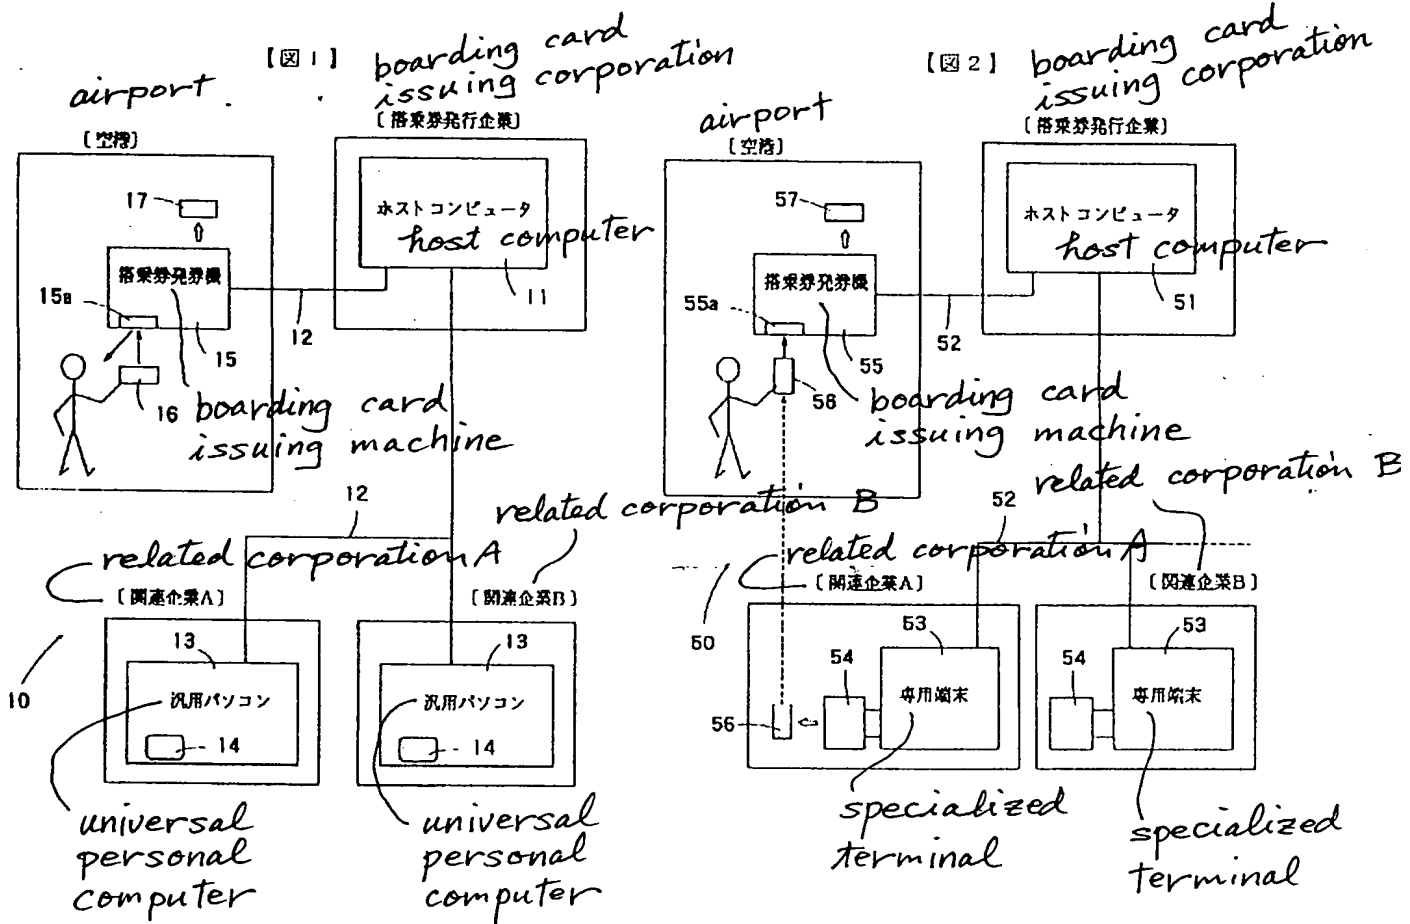 【図1】
boarding card
issuing corporation
airport
〔搭乗券発行企業〕
〔空港〕
17
ホストコンピュータ
host computer
搭乗券発券機
15a
11
12
15
16
boarding card
issuing machine
12
related corporation B
related corporation A
〔関連企業A〕
〔関連企業B〕
13
13
10
汎用パソコン
汎用パソコン
14
14
universal
personal
computer
universal
personal
computer
【図2】
boarding card
issuing corporation
airport
〔搭乗券発行企業〕
〔空港〕
57
ホストコンピュータ
host computer
搭乗券発券機
55a
51
52
55
58
boarding card
issuing machine
related corporation B
52
related corporation A
〔関連企業A〕
〔関連企業B〕
50
53
53
54
54
専用端末
専用端末
56
specialized
terminal
specialized
terminal